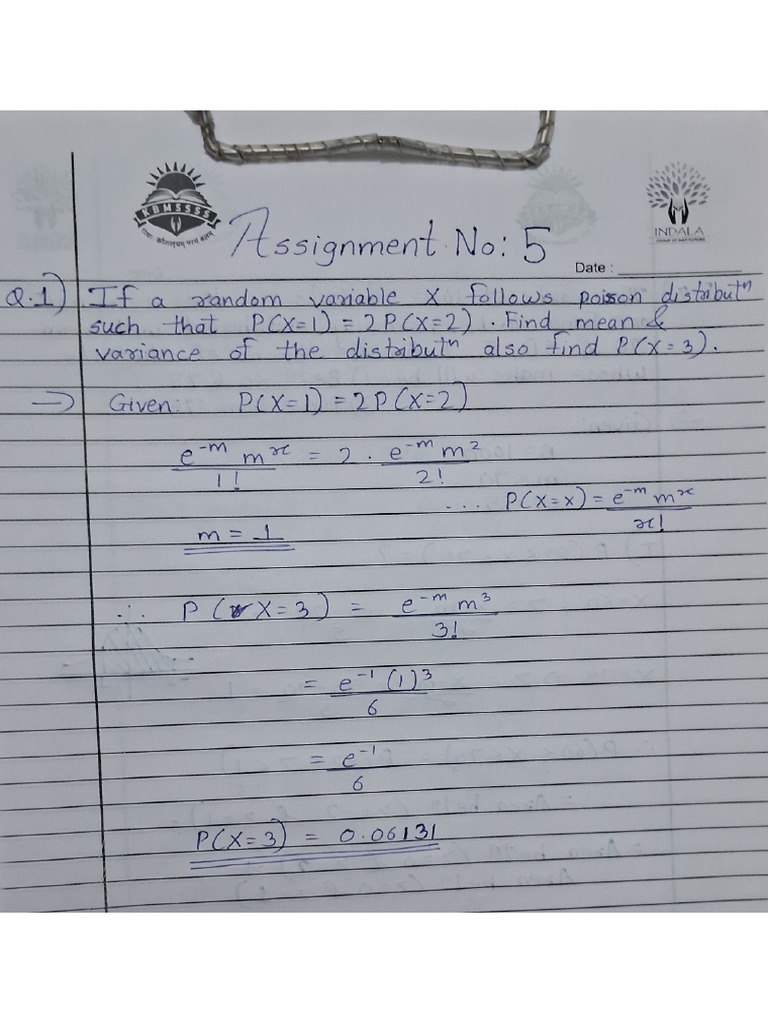 KBMSSSS
INDALA
GROUP OF INSTITUTIONS
Assignment No: 5
Date :
Q.1) If a random variable X follows poison distributⁿ
such that P(X=1) = 2P(X=2). Find mean &
variance of the distributⁿ also find P(X=3).
→ Given: P(X=1) = 2P(X=2)
e⁻ᵐ mˣ / 1! = 2 · e⁻ᵐ m² / 2!
... P(X=x) = e⁻ᵐ mˣ / x!
m = 1
∴ P(X=3) = e⁻ᵐ m³ / 3!
= e⁻¹ (1)³ / 6
= e⁻¹ / 6
P(X=3) = 0.06131